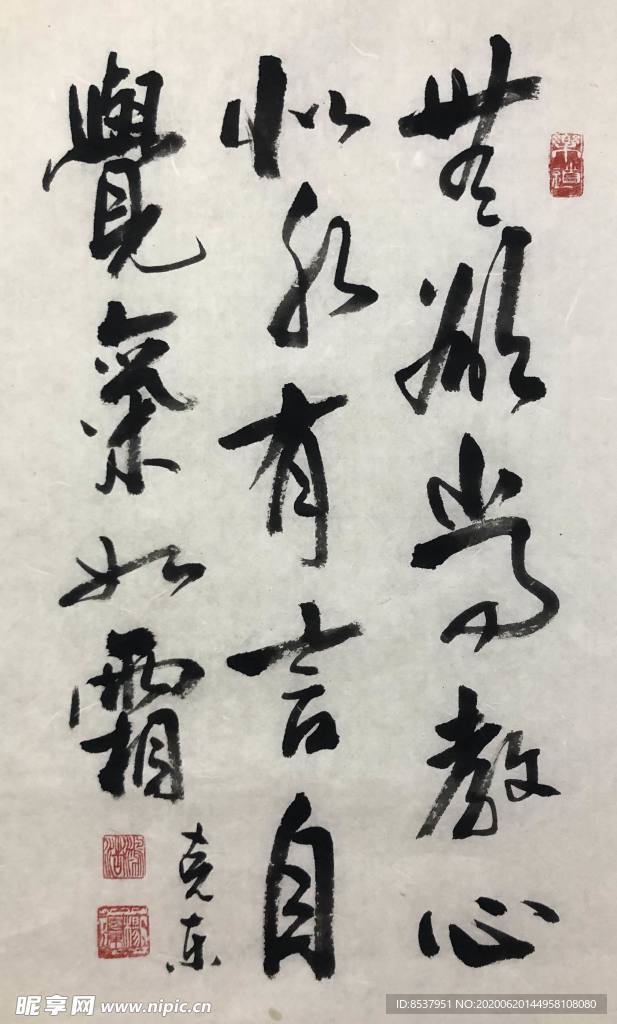 樂道
無欲常教心
似水有言自
覺氣如霜
克东
昵享网 www.nipic.cn
ID:8537951 NO:20200620144958108080